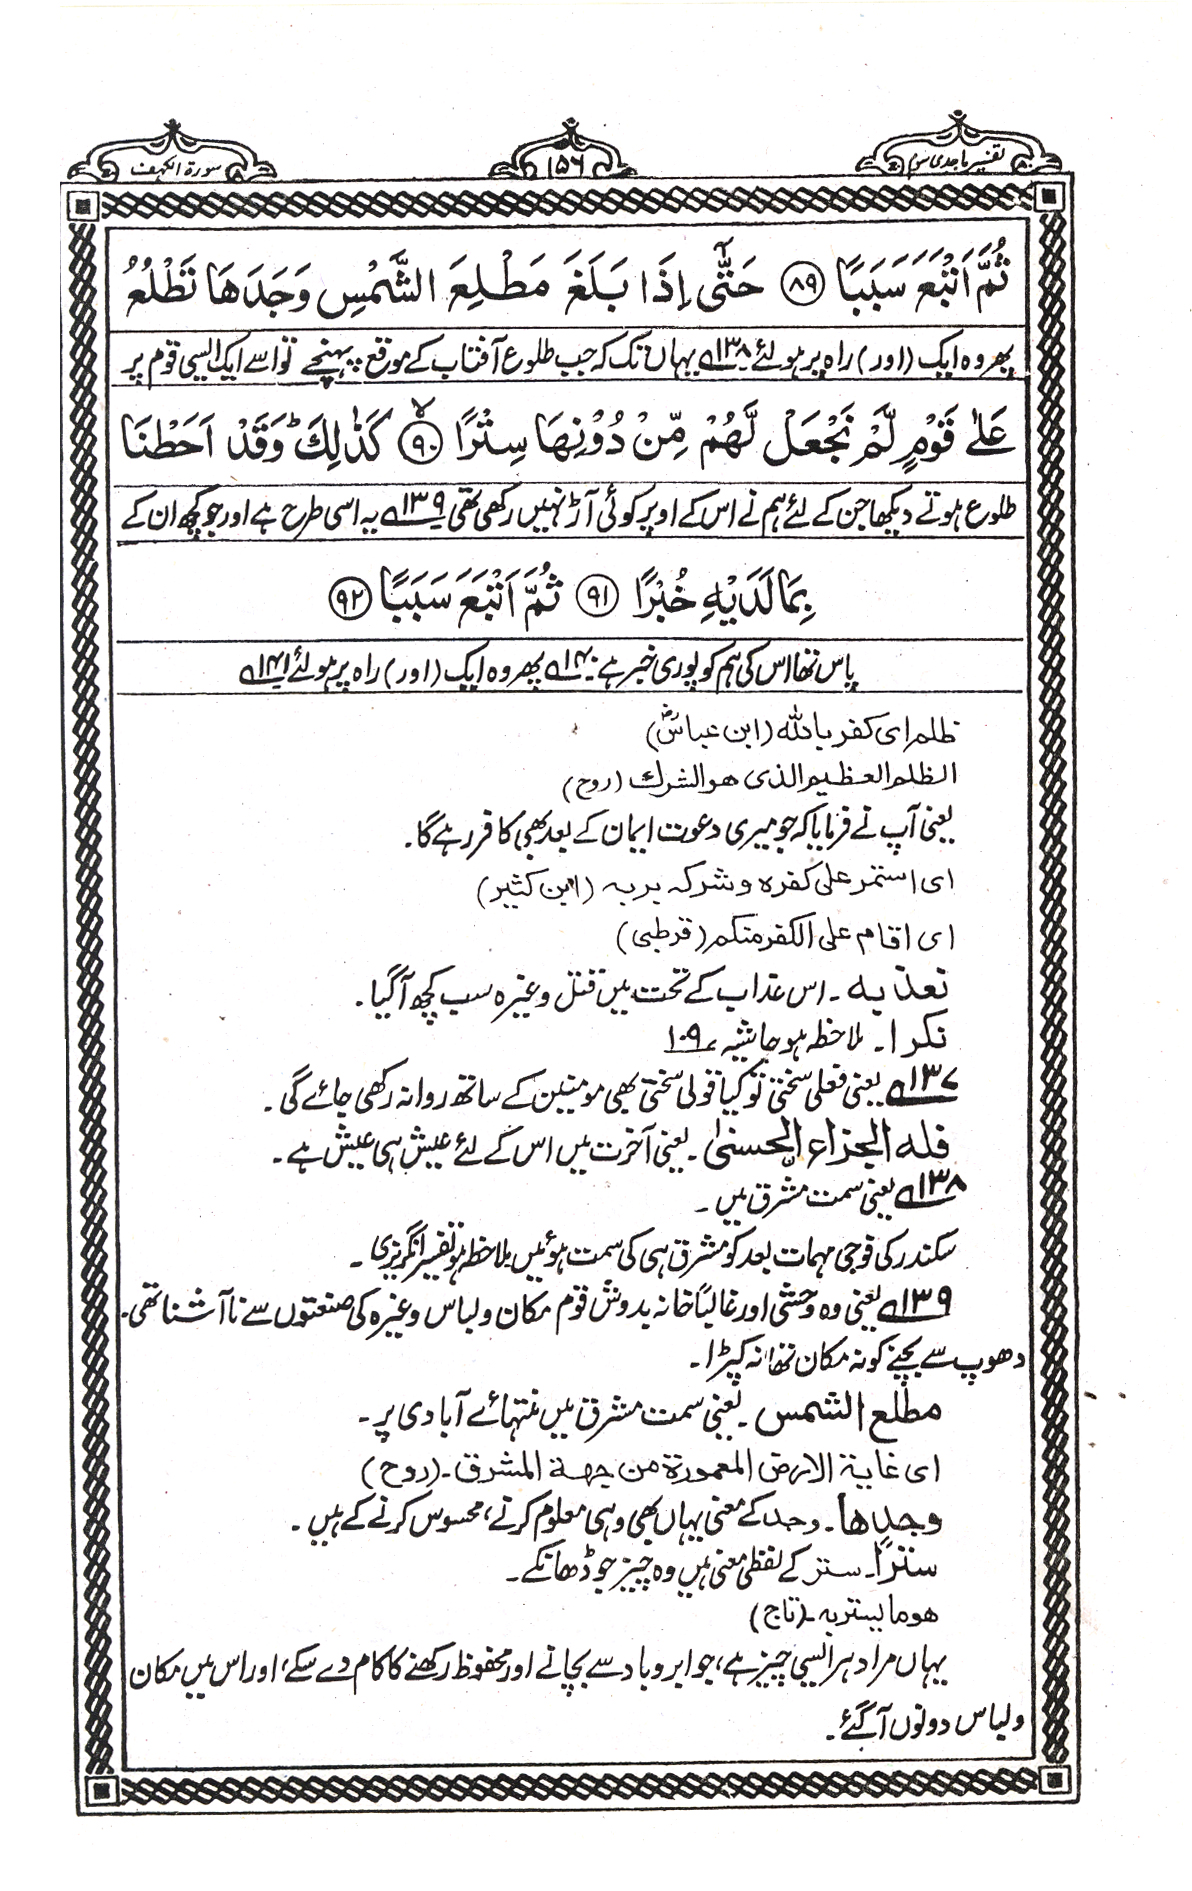 تفسیر ماجدی سوم
۱۵۶
سورۃ الکہف
ثُمَّ اَتْبَعَ سَبَبًا ﴿۸۹﴾ حَتّٰۤی اِذَا بَلَغَ مَطْلِعَ الشَّمْسِ وَجَدَهَا تَطْلُعُ
پھر وہ ایک (اور) راہ پر ہولئے ۱۳۸؎ یہاں تک کہ جب طلوع آفتاب کے موقع پر پہنچے تو اسے ایک ایسی قوم پر
عَلٰی قَوْمٍ لَّمْ نَجْعَلْ لَّهُمْ مِّنْ دُوْنِهَا سِتْرًا ﴿۹۰﴾ كَذٰلِكَ ؕ وَقَدْ اَحَطْنَا
طلوع ہوتے دیکھا جن کے لئے ہم نے اس کے اوپر کوئی آڑ نہیں رکھی تھی ۱۳۹؎ یہ اسی طرح ہے اور جو کچھ ان کے
بِمَا لَدَیْهِ خُبْرًا ﴿۹۱﴾ ثُمَّ اَتْبَعَ سَبَبًا ﴿۹۲﴾
پاس تھا اس کی ہم کو پوری خبر ہے ۱۴۰؎ پھر وہ ایک (اور) راہ پر ہولئے ۱۴۱؎
ظلم ای کفر باللہ (ابن عباسؓ)
الظلم العظیم الذی ھو الشرک (روح)
یعنی آپ نے فرمایا کہ جو میری دعوت ایمان کے بعد بھی کافر رہے گا۔
ای استمر علی کفرہ وشرکہ بربہ (ابن کثیر)
ای اقام علی الکفر منکم (قرطبی)
نعذبہ۔ اس عذاب کے تحت میں قتل وغیرہ سب کچھ آگیا۔
نکرا۔ ملاحظہ ہو حاشیہ ۱۰۹؎
۱۳۷؎ یعنی فعلی سختی تو کیا قولی سختی بھی مومنین کے ساتھ روا نہ رکھی جائے گی۔
فلہ الجزاء الحسنیٰ۔ یعنی آخرت میں اس کے لئے عیش ہی عیش ہے۔
۱۳۸؎ یعنی سمت مشرق میں۔
سکندر کی فوجی مہمات بعد کو مشرق ہی کی سمت ہوئیں ملاحظہ ہو تفسیر انگریزی۔
۱۳۹؎ یعنی وہ وحشی اور غالباً خانہ بدوش قوم مکان ولباس وغیرہ کی صنعتوں سے ناآشنا تھی۔
دھوپ سے بچنے کو نہ مکان تھا نہ کپڑا۔
مطلع الشمس۔ یعنی سمت مشرق میں منتہائے آبادی پر۔
ای غایۃ الارض المعمورۃ من جھۃ المشرق۔ (روح)
وجدھا۔ وجد کے معنی یہاں بھی وہی معلوم کرنے، محسوس کرنے کے ہیں۔
سترًا۔ ستر کے لفظی معنی ہیں وہ چیز جو ڈھانکے۔
ھو ما یستر بہ۔ (تاج)
یہاں مراد ہر ایسی چیز ہے، جو ابر وباد سے بچانے اور محفوظ رکھنے کا کام دے سکے، اور اس میں مکان
ولباس دونوں آگئے۔